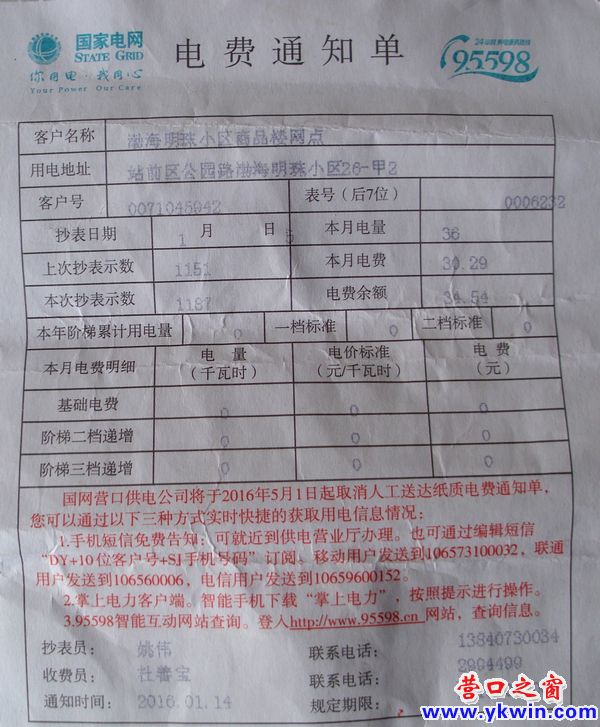 国家电网
STATE GRID
你用电·我用心
Your Power Our Care
电费通知单
95598
客户名称 渤海明珠小区商品楼网点
用电地址 站前区公园路渤海明珠小区26-甲2
客户号 0071045942 表号（后7位） 0006232
抄表日期 1 月 5 日 本月电量 36
上次抄表示数 1151 本月电费 30.29
本次抄表示数 1187 电费余额 34.54
本年阶梯累计用电量 0 一档标准 0 二档标准 0
本月电费明细 电 量（千瓦时） 电价标准（元/千瓦时） 电 费（元）
基础电费 0 0 0
阶梯二档递增 0 0 0
阶梯三档递增 0 0 0
国网营口供电公司将于2016年5月1日起取消人工送达纸质电费通知单，
您可以通过以下三种方式实时快捷的获取用电信息情况：
1.手机短信免费告知：可就近到供电营业厅办理。也可通过编辑短信
“DY+10位客户号+SJ手机号码”订阅、移动用户发送到106573100032，联通
用户发送到106560006，电信用户发送到10659600152。
2.掌上电力客户端。智能手机下载“掌上电力”，按照提示进行操作。
3.95598智能互动网站查询。登入http://www.95598.cn网站，查询信息。
抄表员： 姚伟 联系电话： 13840730034
收费员： 杜善宝 联系电话： 2994499
通知时间： 2016.01.14 规定期限：
营口之窗
www.ykwin.com